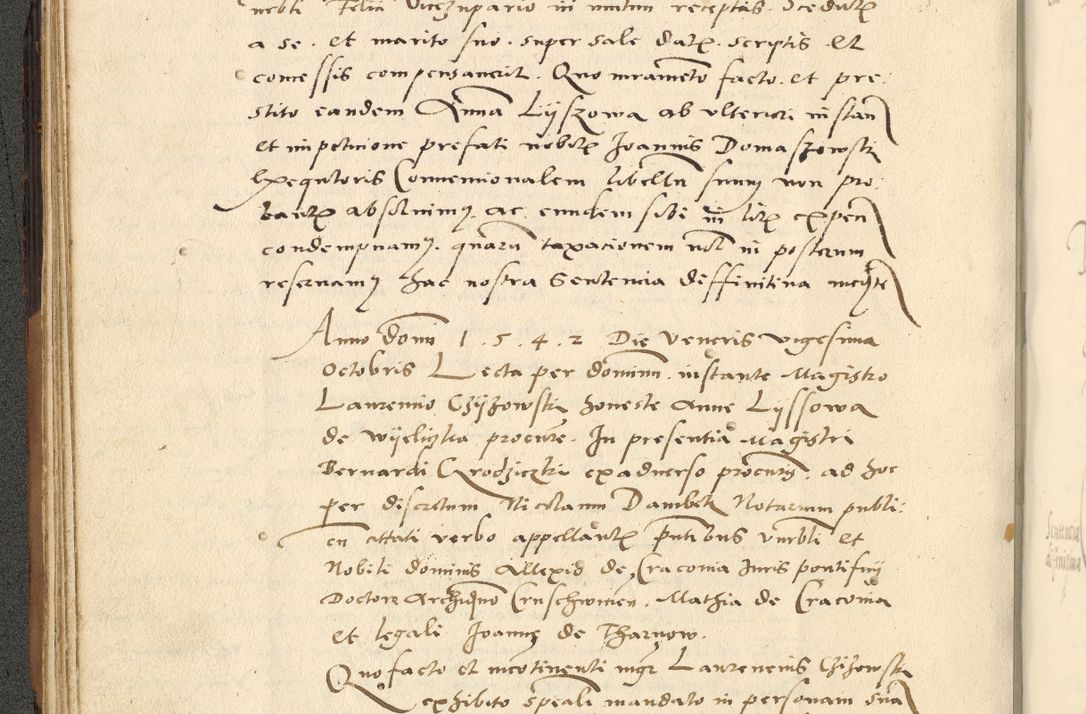 nobli Felici Vicezupario in mutuum receptas. Scedulis
a se. et marito suo. super sale datis. scriptis et
comessis compensaverit. Quo iuramento facto. et pre:
stito eandem Anna Lyszowa ab ulteriori instan
et impeticione prefati nobilis Joannis Domaszowski
Exequtoris Convencionalem libellum suum non pro:
bantis absolvimus. ac eundem sibi in litis expen
condempnamus. quarum taxacionem nobis in posterum
reservamus hac nostra Sentencia deffinitiva mediante
Anno domini 1.5.4.2 Die Veneris vigesima
Octobris Lecta per dominum. instante Magistro
Laurencio Czyzowski honeste Anne Lyssowa
de Wyeliczka procuratore. In presentia Magistri
Bernardi Grodziczki ex adverso procuratoris. ad hoc
per discretum Nicolaum Dambek Notarium publi:
cum attati verbo appellantis presentibus venerabili et
Nobili dominis Allexio de Cracovia Iuris pontificii
Doctore Archidiacono Cruschvicien. Mathia de Cracovia
et legali Joanne de Tharnow.
Quo facto et incontinenti magister Laurencius Czizowski
exhibito speciali mandato in personam sua
Sentencia
diffinitiva